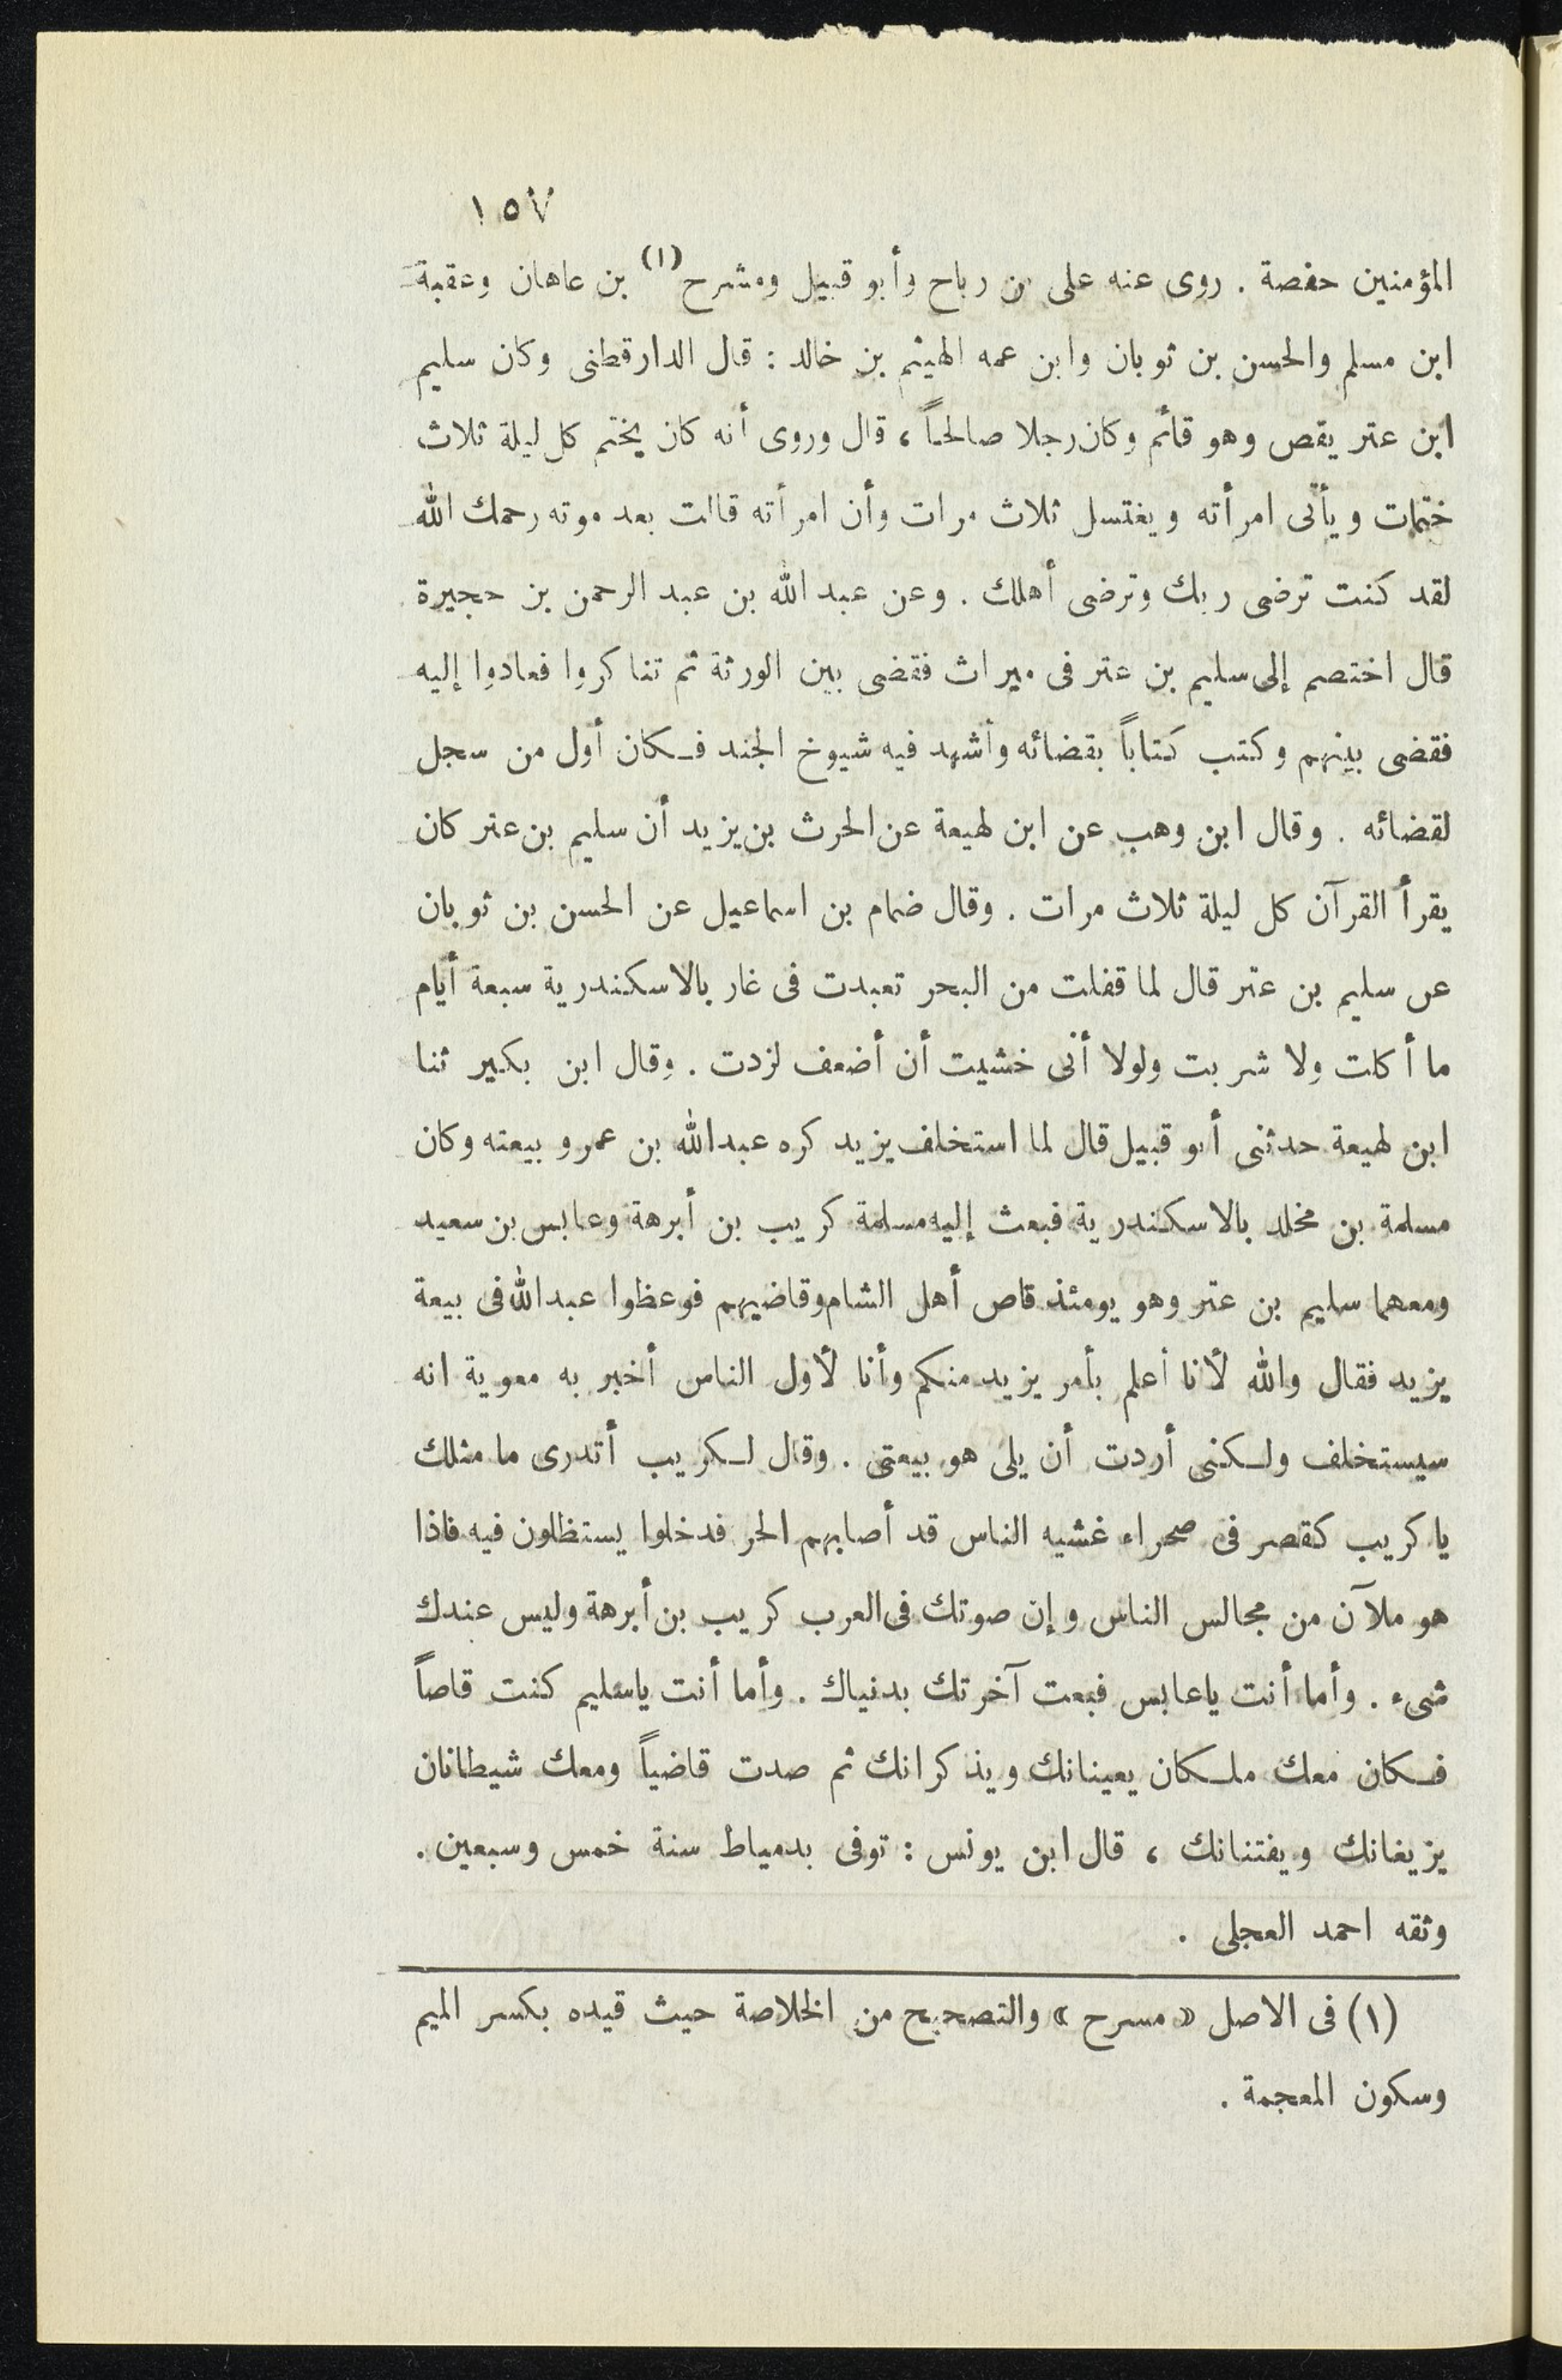 ١٥٧
المؤمنين حفصة . روى عنه على بن رباح وأبو قبيل ومشرح (١) بن عاهان وعقبة
ابن مسلم والحسن بن ثوبان وابن عمه الهيثم بن خالد : قال الدارقطنى وكان سليم
ابن عتر يقص وهو قائم وكان رجلا صالحاً ، قال وروى أنه كان يختم كل ليلة ثلاث
ختمات ويأتى امرأته ويغتسل ثلاث مرات وأن امرأته قالت بعد موته رحمك الله
لقد كنت ترضى ربك وترضى أهلك . وعن عبد الله بن عبد الرحمن بن حجيرة
قال اختصم إلى سليم بن عتر فى ميراث فقضى بين الورثة ثم تناكروا فعادوا إليه
فقضى بينهم وكتب كتاباً بقضائه وأشهد فيه شيوخ الجند فكان أول من سجل
لقضائه . وقال ابن وهب عن ابن لهيعة عن الحرث بن يزيد أن سليم بن عتر كان
يقرأ القرآن كل ليلة ثلاث مرات . وقال ضمام بن اسماعيل عن الحسن بن ثوبان
عن سليم بن عتر قال لما قفلت من البحر تعبدت فى غار بالاسكندرية سبعة أيام
ما أكلت ولا شربت ولولا أنى خشيت أن أضعف لزدت . وقال ابن بكير ثنا
ابن لهيعة حدثنى أبو قبيل قال لما استخلف يزيد كره عبد الله بن عمرو بيعته وكان
مسلمة بن مخلد بالاسكندرية فبعث إليه مسلمة كريب بن أبرهة وعابس بن سعيد
ومعهما سليم بن عتر وهو يومئذ قاص أهل الشام وقاضيهم فوعظوا عبد الله فى بيعة
يزيد فقال والله لأنا أعلم بأمر يزيد منكم وأنا لأول الناس أخبر به معوية انه
سيستخلف ولكنى أردت أن يلى هو بيعتى . وقال لكريب أتدرى ما مثلك
يا كريب كقصر فى صحراء غشيه الناس قد أصابهم الحر فدخلوا يستظلون فيه فاذا
هو ملآن من مجالس الناس وإن صوتك فى العرب كريب بن أبرهة وليس عندك
شىء . وأما أنت ياعابس فبعت آخرتك بدنياك . وأما أنت ياسليم كنت قاصاً
فكان معك ملكان يعينانك ويذكرانك ثم صدت قاضياً ومعك شيطانان
يزيغانك ويفتنانك ، قال ابن يونس : توفى بدمياط سنة خمس وسبعين .
وثقه احمد العجلى .
(١) فى الاصل « مسرح » والتصحيح من الخلاصة حيث قيده بكسر الميم
وسكون المعجمة .